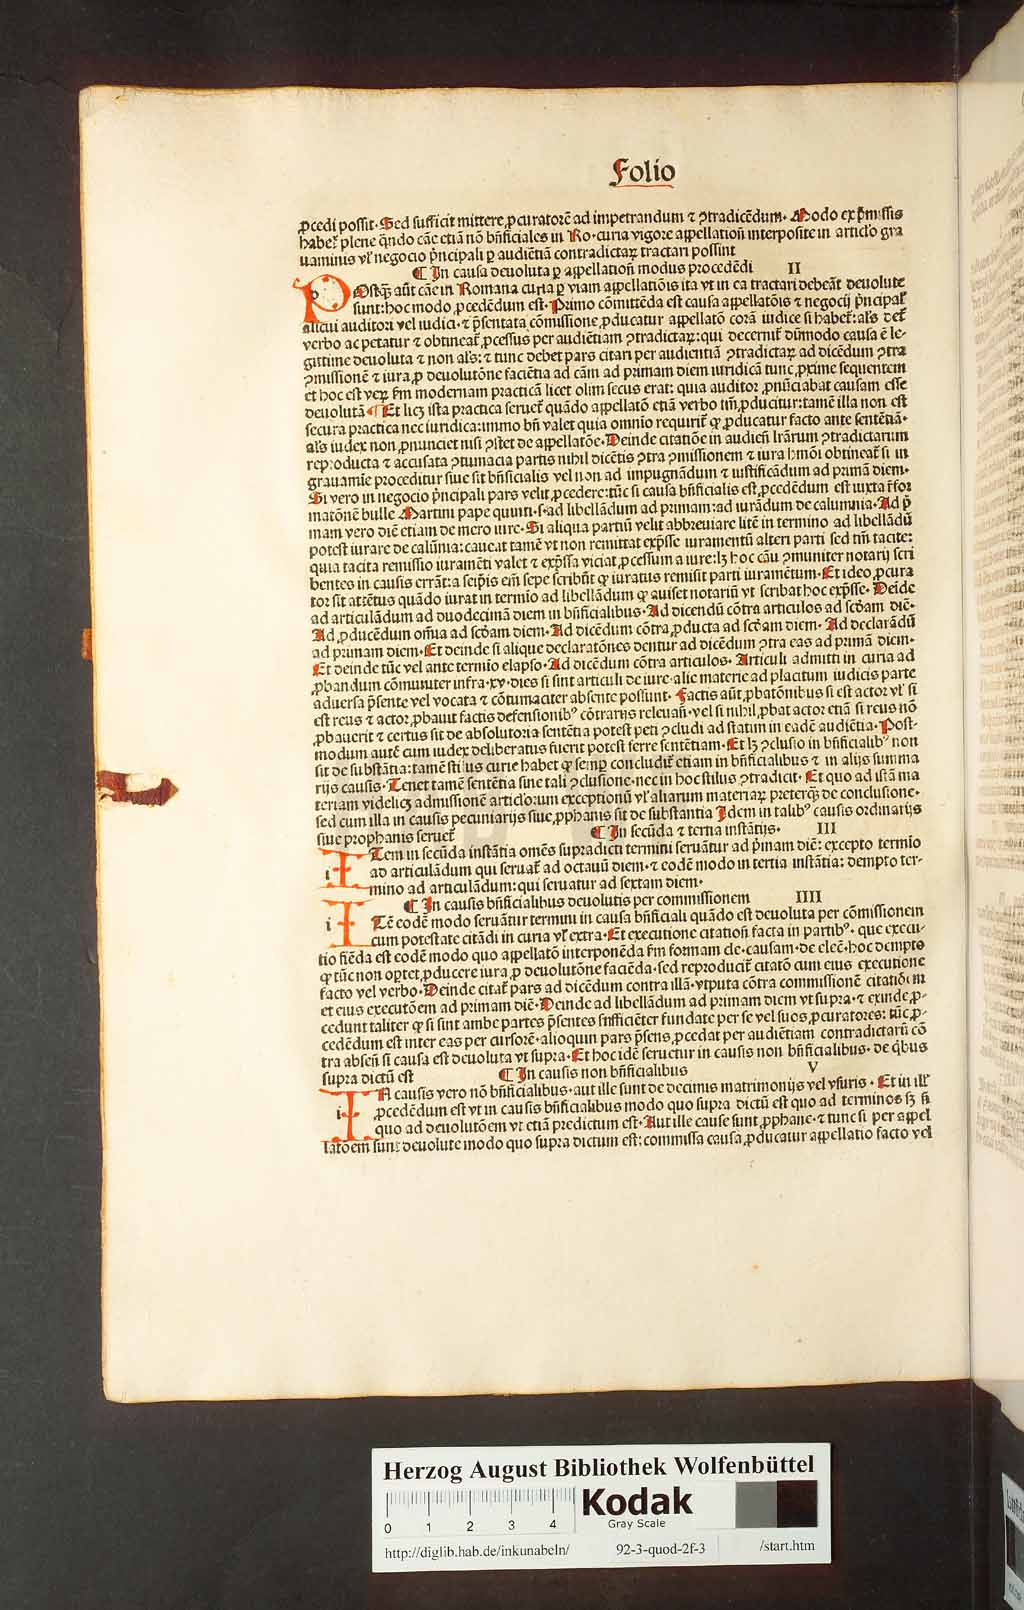 Folio
ꝓcedi possit. Sed sufficit mittere ꝓcuratorē ad impetrandum ⁊ ꝯtradicēdum. Modo ex p̄missis
haber̄ plene q̄ndo cāe etiā nō bn̄ficiales in Ro. curia vigore appellation̄ interposite in articl̓o gra
uaminis vl̓ negocio pn̄cipali ꝑ audiētiā contradictaꝝ tractari possint
¶ In causa deuoluta ꝑ appellation̄ modus procedēdi II
POstꝗ̄ aūt cāe in Romana curia ꝑ viam appellatiōis ita vt in ea tractari debeāt deuolute
sunt: hoc modo ꝓcedēdum est. Primo cōmittēda est causa appellatōis ⁊ negocij pn̄cipal̓
alicui auditori vel iudici. ⁊ p̄sentata cōmissione ꝓducatur appellatō corā iudice si haber̄: al̓s de
verbo ac petatur ⁊ obtineat̄ ꝓcessus per audiētiam ꝯtradictaꝝ: qui decernit̄ dūmodo causa ē le-
gittime deuoluta ⁊ non al̓s: ⁊ tunc debet pars citari per audientiā ꝯtradictaꝝ ad dicēdum ꝯtra
ꝯmissionē ⁊ iura ꝓ deuolutōne faciētia ad cām ad primam diem iuridicā tunc ꝓxime sequentem
et hoc est veꝝ fm̄ modernam practicā licet olim secus erat: quia auditor ꝓnūciabat causam esse
deuolutā ¶ Et licꝫ ista practica seruet̄ quādo appellatō etiā verbo tm̄ ꝓducitur: tamē illa non est
secura practica nec iuridica: immo bn̄ valet quia omnio requirit̄ ꝙ ꝓducatur facto ante sentētiā.
al̓s iudex non ꝓnunciet nisi ꝯstet de appellatōe. Deinde citatiōe in audien̄ lr̄arum ꝯtradictarum
reproducta ⁊ accusata ꝯtumacia partis nihil dicētis ꝯtra ꝯmissionem ⁊ iura hmōi obtineat̄ si in
grauamīe proceditur siue sit bn̄ficialis vel non ad impugnādum ⁊ iustificādum ad primā diem.
Si vero in negocio pn̄cipali pars velit ꝓcedere: tūc si causa bn̄ficialis est ꝓcedēdum est iuxta r̄for
matōnē bulle Martini pape quinti. s. ad libellādum ad primam: ad iurādum de calumnia. Ad p̄
mam vero diē etiam de mero iure. Si aliqua partiū velit abbreuiare litē in termino ad libellādū
potest iurare de calūnia: caueat tamē vt non remittat exp̄sse iuramentū alteri parti sed tm̄ tacite:
quia tacita remissio iuramēti valet ⁊ exp̄ssa viciat ꝓcessum a iure: lꝫ hoc cāu ꝯmuniter notarij scri
bentes in causis errāt: a seip̄is em̄ sepe scribūt ꝙ iuratus remisit parti iuramētum. Et ideo ꝓcura
tor sit attētus quādo iurat in termīo ad libellādum ꝙ auiset notariū vt scribat hoc exp̄sse. Deīde
ad articulādum ad duodecimā diem in bn̄ficialibus. Ad dicendū cōtra articulos ad scd̄am diē.
Ad ꝓducēdum om̄ia ad scd̄am diem. Ad dicēdum cōtra ꝓducta ad scd̄am diem. Ad declarādū
ad primam diem. Et deinde si alique declaratōnes dentur ad dicēdum ꝯtra eas ad primā diem.
Et deinde tūc vel ante termīo elapso. Ad dicēdum cōtra articulos. Articuli admitti in curia ad
ꝓbandum cōmuniter infra. xv. dies si sint articuli de iure. alic materie ad placitum iudicis parte
aduersa p̄sente vel vocata ⁊ cōtumaciter absente possunt. Factis aūt ꝓbatōnibus si est actor vl̓ si
est reus ⁊ actor ꝓbauit factis defensionibꝰ cōtrarijs releuan̄. vel si nihil ꝓbat actor etiā si reus nō
ꝓbauerit ⁊ certus sit de absolutoria sentētia potest peti ꝯcludi ad statim in eadē audiētia. Post-
modum autē cum iudex deliberatus fuerit potest ferre sentētiam. Et lꝫ ꝯclusio in bn̄ficialibꝰ non
sit de substātia: tamē stilus curie habet ꝙ semꝑ concludit̄ etiam in bn̄ficialibus ⁊ in alijs summa
rijs causis. Tenet tamē sentētia sine tali ꝯclusione. nec in hoc stilus ꝯtradicit. Et quo ad istā ma
teriam videlicꝫ admissionē articl̓orum exceptionū vl̓ aliarum materiaꝝ preterꝗ̄ de conclusione.
sed cum illa in causis pecuniarijs siue ꝓphanis sit de substantia Idem in talibꝰ causis ordinarijs
siue prophanis seruet̄ ¶ In secūda ⁊ tertia instātijs. III
ITem in secūda instātia omēs supradicti termini seruātur ad pr̄imam diē: excepto termīo
ad articulādum qui seruat̄ ad octauū diem. ⁊ eodē modo in tertia instātia: dempto ter-
mino ad articulādum: qui seruatur ad sextam diem.
¶ In causis bn̄ficialibus deuolutis per commissionem IIII
ITē eodē modo seruātur termini in causa bn̄ficiali quādo est deuoluta per cōmissionem
cum potestate citādi in curia vl̓ extra. Et executione citation̄ facta in partibꝰ. que execu-
tio fiēda est eodē modo quo appellatō interponēda fm̄ formam cle. causam. de elec. hoc dempto
ꝙ tūc non optet ꝓducere iura ꝓ deuolutōne faciēda. sed reproducit̄ citatō cum eius executione
facto vel verbo. Deinde citat̄ pars ad dicēdum contra illā. vtputa cōtra commissionē citatiōem
et eius executōem ad primam diē. Deinde ad libellādum ad primam diem vt supra. ⁊ exinde ꝓ-
cedunt taliter ꝙ si sint ambe partes p̄sentes sufficiēter fundate per se vel suos ꝓcuratores: tūc ꝓ-
cedēdum est inter eas per cursorē. alioquin pars p̄sens ꝓcedat per audiētiam contradictarū cō
tra absen̄ si causa est deuoluta vt supra. Et hoc idē seruetur in causis non bn̄ficialibus. de qͥbus
supra dictū est ¶ In causis non bn̄ficialibus V
IN causis vero nō bn̄ficialibus. aut ille sunt de decimis matrimonijs vel vsuris. Et in ill̓
ꝓcedēdum est vt in causis bn̄ficialibus modo quo supra dictū est quo ad terminos sꝫ
quo ad deuolutōem vt etiā predictum est. Aut ille cause sunt ꝓphane. ⁊ tunc si per appel
latōem sunt deuolute modo quo supra dictum est: commissa causa ꝓducatur appellatio facto vel
Herzog August Bibliothek Wolfenbüttel
0 1 2 3 4
Kodak
Gray Scale
http://diglib.hab.de/inkunabeln/ 92-3-quod-2f-3 /start.htm